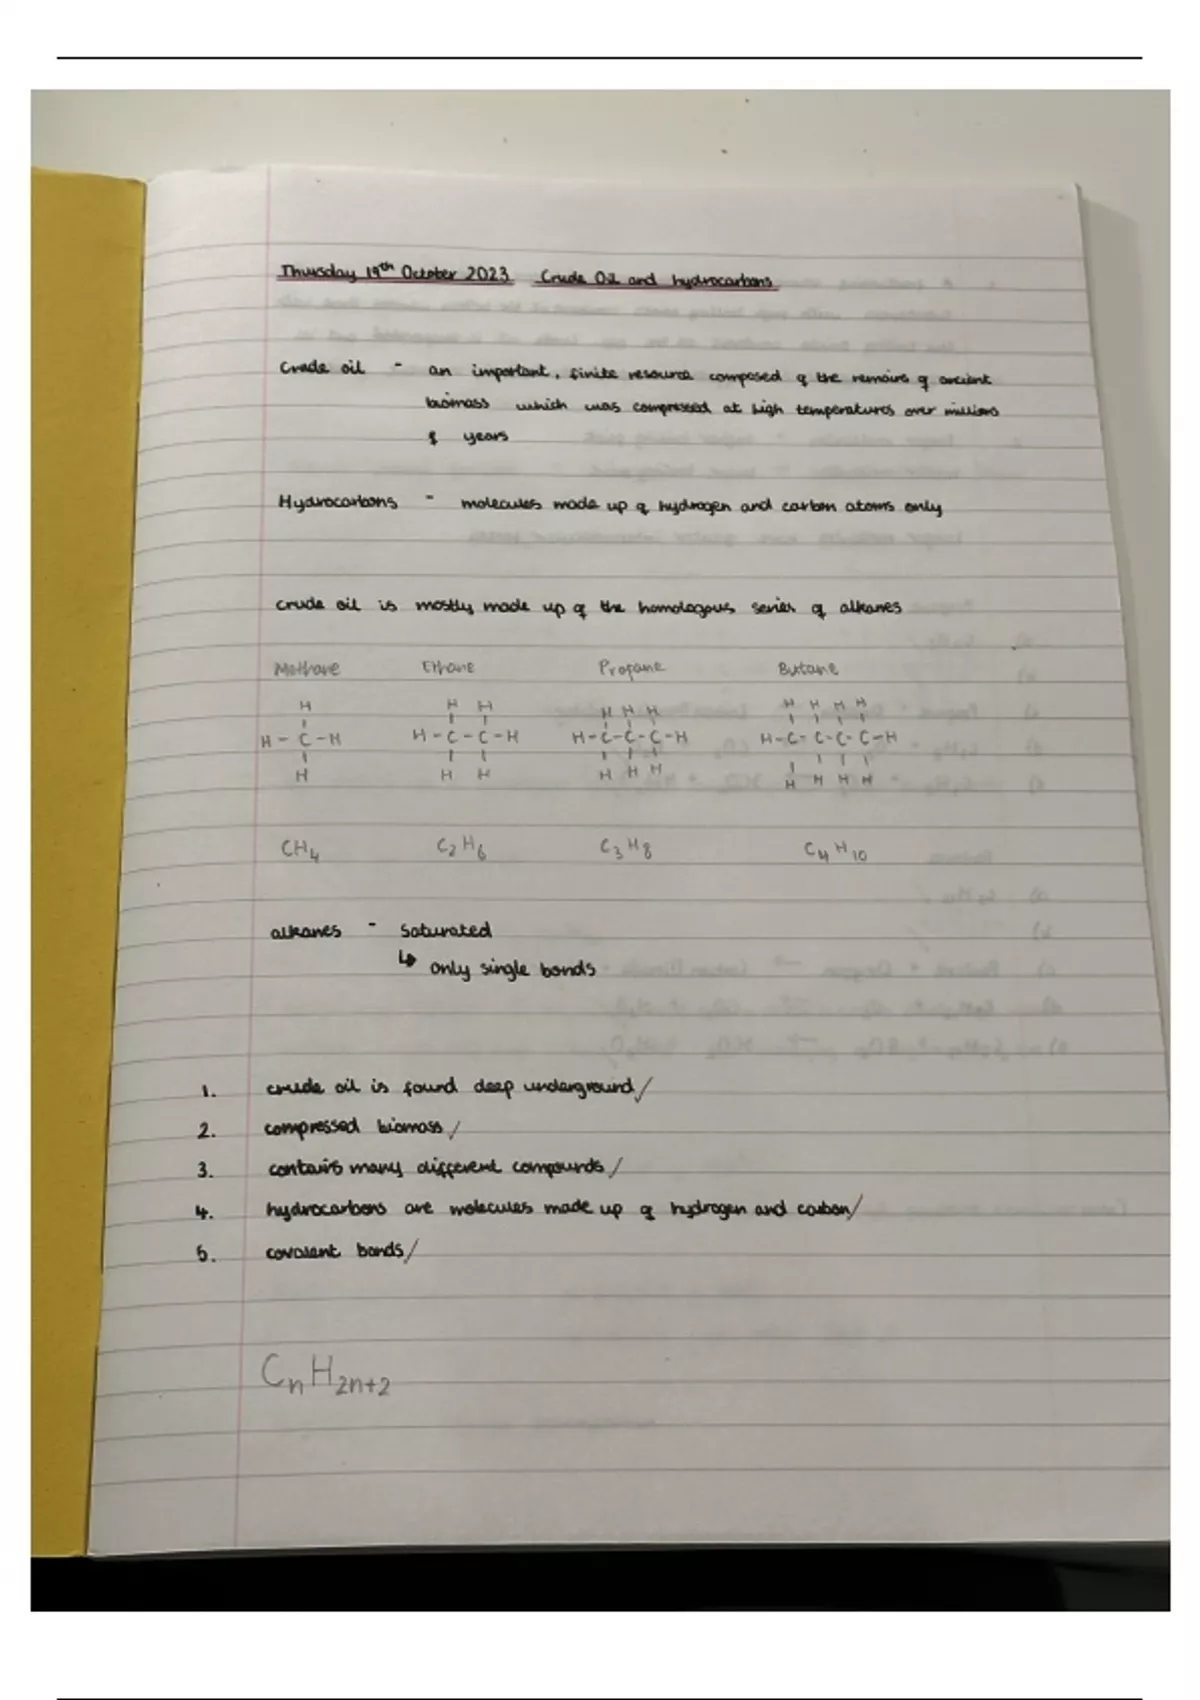 Thursday 19th October 2023 Crude Oil and hydrocarbons
Crude oil - an important, finite resource composed of the remains of ancient
biomass which was compressed at high temperatures over millions
of years
Hydrocarbons - molecules made up of hydrogen and carbon atoms only
crude oil is mostly made up of the homologous series of alkanes
Methane Ethane Propane Butane
H H H H H H H H H H
H-C-H H-C-C-H H-C-C-C-H H-C-C-C-C-H
H H H H H H H H H H
CH4 C2H6 C3H8 C4H10
alkanes - saturated
↳ only single bonds
1. crude oil is found deep underground/
2. compressed biomass/
3. contains many different compounds/
4. hydrocarbons are molecules made up of hydrogen and carbon/
5. covalent bonds/
CnH2n+2